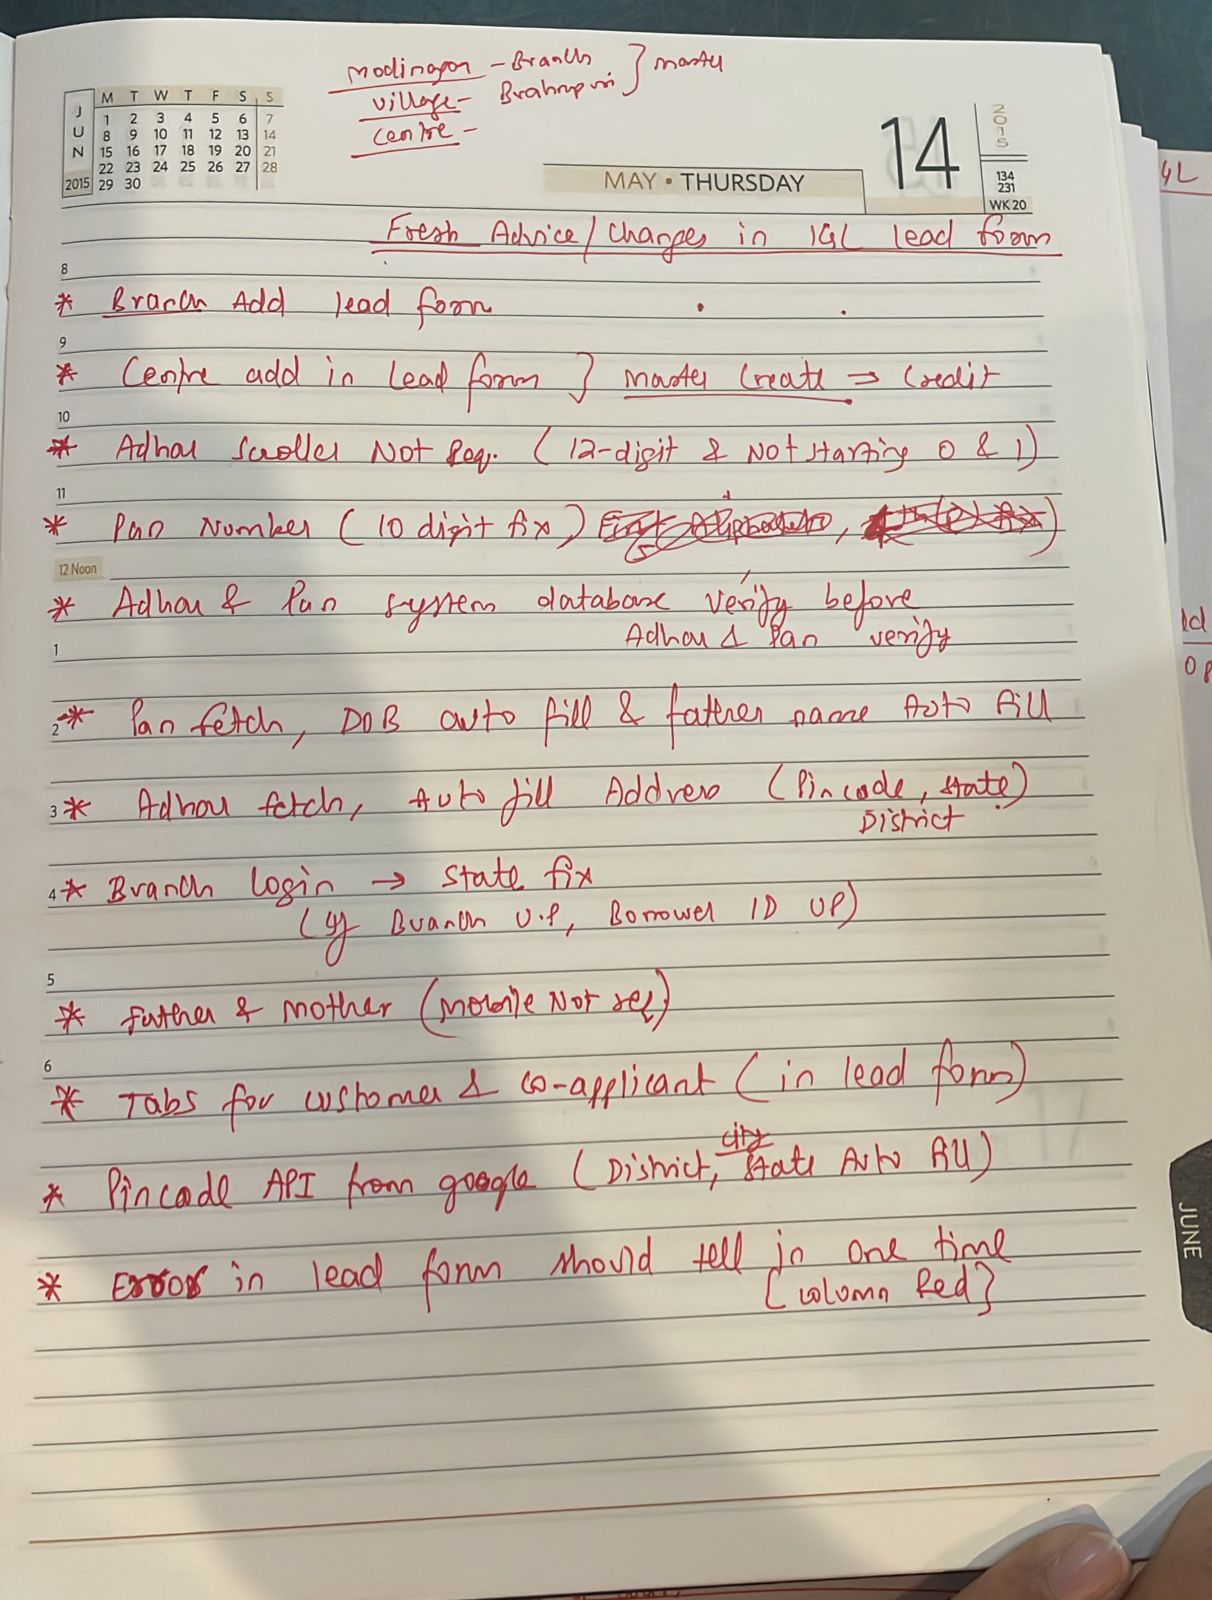 Modinagar - Branch } master
Village - Brahmpuri
Centre -
J U N 2015
M T W T F S S
1 2 3 4 5 6 7
8 9 10 11 12 13 14
15 16 17 18 19 20 21
22 23 24 25 26 27 28
29 30
MAY • THURSDAY
14
2015
134
231
WK 20
GL
Fresh Advice/Changes in IGL lead form
8
* Branch Add lead form
9
* Centre add in lead form } Master Create → Credit
10
* Adhar Scroller Not Req. (12-digit & Not starting 0 & 1)
11
* Pan Number (10 digit fix)
12 Noon
* Adhar & Pan system database verify before
Adhar & Pan verify
1
2 * Pan fetch, DOB auto fill & father name Auto fill
3 * Adhar fetch, Auto fill Address (Pincode, state)
District
4 * Branch login → state fix
(If Branch U.P, Borrower ID UP)
5
* Father & Mother (Mobile Not req)
6
* Tabs for customer & co-applicant (in lead form)
city
* Pincode API from google (District, state Auto fill)
* Error in lead form should tell in one time
[column Red]
JUNE